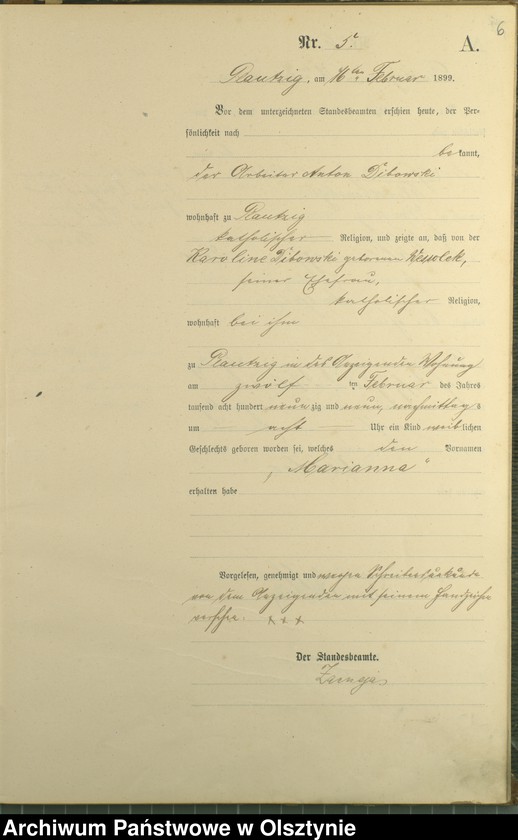 6
Nr. 5. A.
am 16ten Februar 1899.
Vor dem unterzeichneten Standesbeamten erschien heute, der Per-
sönlichkeit nach
bekannt,
der Arbeiter Anton Dibowski
wohnhaft zu
katholischer Religion, und zeigte an, daß von der
Karoline Dibowski geborenen
seiner Ehefrau,
katholischer Religion,
wohnhaft bei ihm
zu in des Anzeigenden Wohnung
am zwölf ten Februar des Jahres
tausend acht hundert neunzig und neun, nachmittags
um acht Uhr ein Kind weiblichen
Geschlechts geboren worden sei, welches den Vornamen
„Marianna“
erhalten habe
Vorgelesen, genehmigt und wegen
von dem Anzeigenden mit seinem Handzeichen
versehen. + + +
Der Standesbeamte.
Archiwum Państwowe w Olsztynie